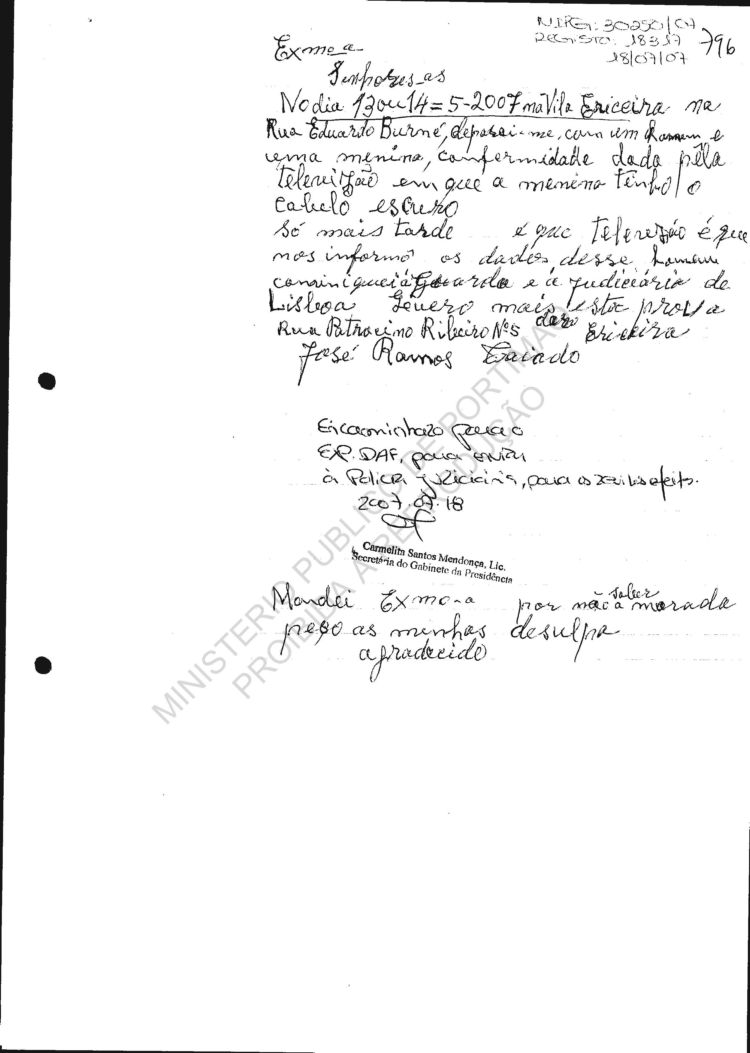 NIPG: 30250/07
REGISTO: 18317
18/07/07
796
Exmo-a
Senhores-as
No dia 13 ou 14=5-2007 na Vila Ericeira na
Rua Eduardo Burné, deparei-me, com um homem e
uma menina, confermidade dada pêla
televizão em que a menina tinha o
cabelo escuro
só mais tarde é que televezão é que
nos informô os dados desse homem
comuniquei á Guarda e á judiciária de
Lisboa mais esta prova
Rua Patrocino Ribeiro Nº5 Ericeira
José Ramos
Encaminhado para o
EXP. DAF, para envio
à Policia Judiciária, para os efeitos.
2007.07.18
Carmelita Santos Mendonça, Lic.
Secretária do Gabinete da Presidência
Mandei Exmo-a por não saber a morada
peço as minhas desulpa
agradecido
MINISTERIO PUBLICO DE PORTIMAO
PROIBIDA A REPRODUÇÃO